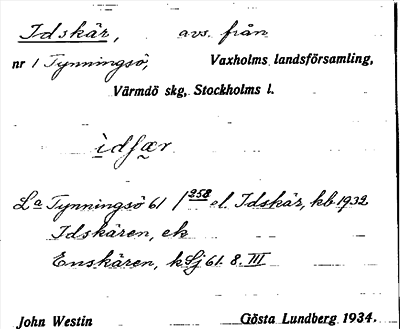 Idskär, avs. från
nr 1 Tynningsö, Vaxholms landsförsamling,
Värmdö skg, Stockholms l.
ìdʃær
La Tynningsö 61 / 258 el. Idskär, kb 1932
Idskären, ek
Enskären, k Sj 61. 8. III
John Westin Gösta Lundberg 1934.